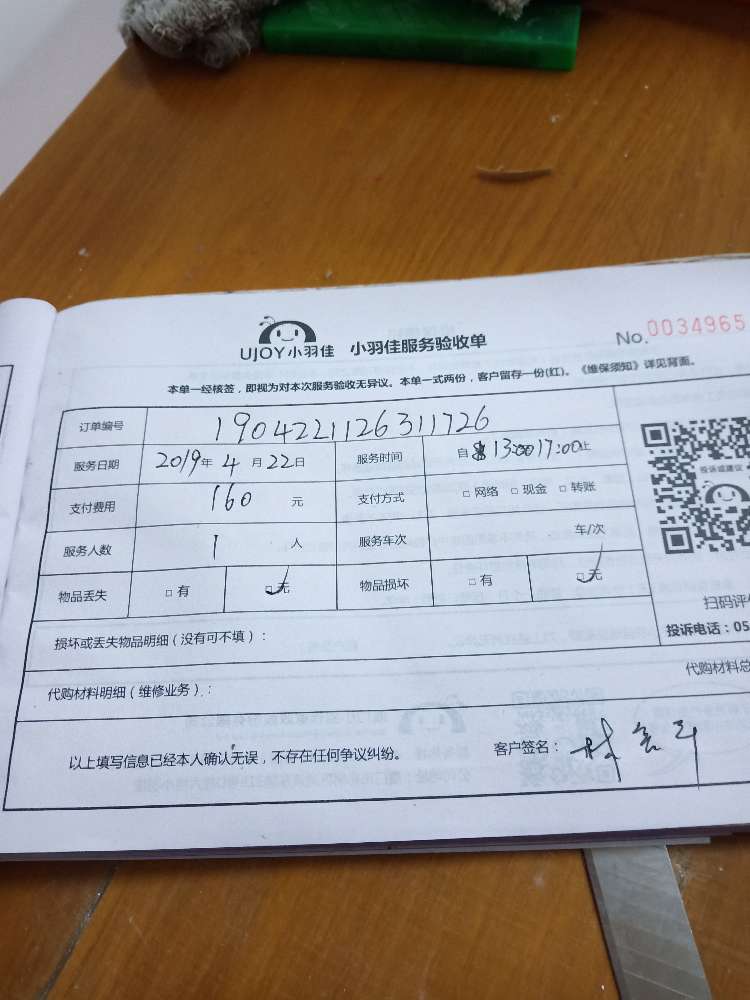 UJOY小羽佳 小羽佳服务验收单 No.0034965
本单一经核签，即视为对本次服务验收无异议。本单一式两份，客户留存一份(红)。《维保须知》详见背面。
订单编号 1904221126311726
服务日期 2019年4月22日 服务时间 自13:00 17:00止
支付费用 160元 支付方式 □网络 □现金 □转账
服务人数 1人 服务车次 车/次
物品丢失 □有 □无 物品损坏 □有 □无
投诉或建议
扫码评
损坏或丢失物品明细（没有可不填）：
投诉电话：05
代购材料明细（维修业务）：
代购材料总
以上填写信息已经本人确认无误，不存在任何争议纠纷。 客户签名：